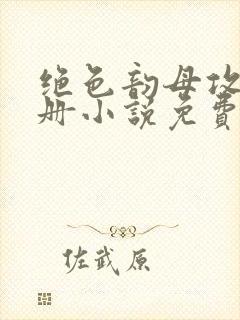 绝色韵母攻
册小说免费
佐武原